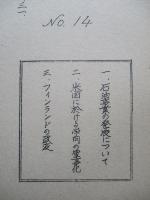 三、
No. 14
一、石油産業の発展について
二、米国に於ける傾向の変化
三、フィンランドの政変